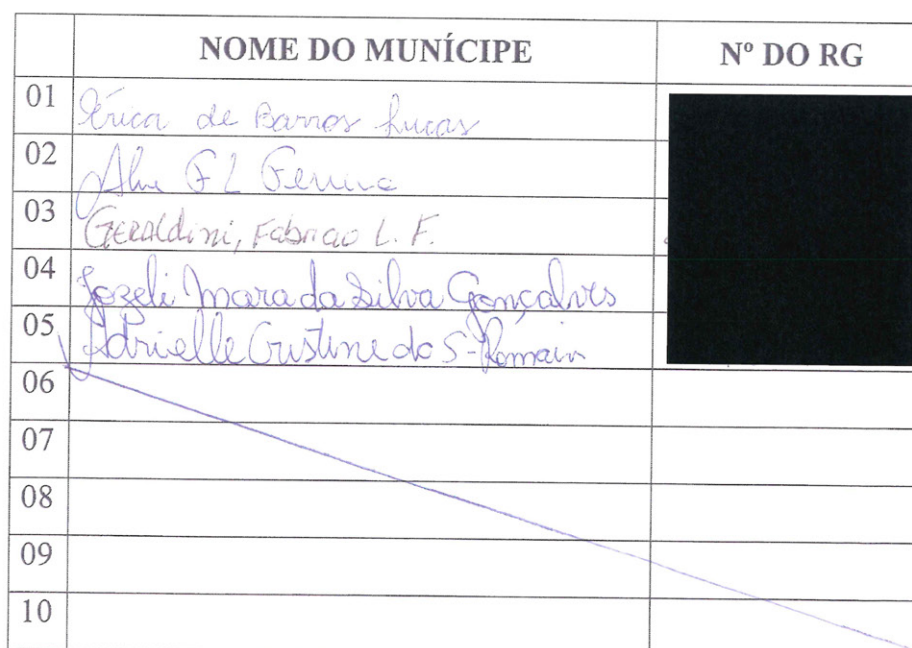 NOME DO MUNÍCIPE Nº DO RG
01 Érica de Barros Lucas
02 G L
03 GERAldini, Fabricio L. F.
04 Jozeli Mara da Silva Gonçalves
05 Adrielle Cristine do S-Romain
06
07
08
09
10